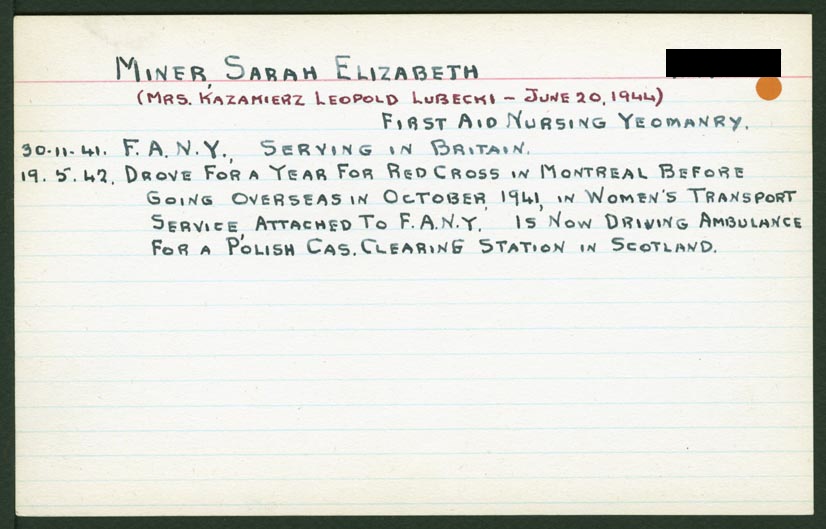 MINER, SARAH ELIZABETH
(MRS. KAZAMIERZ LEOPOLD LUBECKI - JUNE 20, 1944)
FIRST AID NURSING YEOMANRY.
30-11-41. F. A. N. Y., SERVING IN BRITAIN.
19. 5. 42. DROVE FOR A YEAR FOR RED CROSS IN MONTREAL BEFORE
GOING OVERSEAS IN OCTOBER, 1941, IN WOMEN'S TRANSPORT
SERVICE, ATTACHED TO F. A. N. Y. IS NOW DRIVING AMBULANCE
FOR A POLISH CAS. CLEARING STATION IN SCOTLAND.